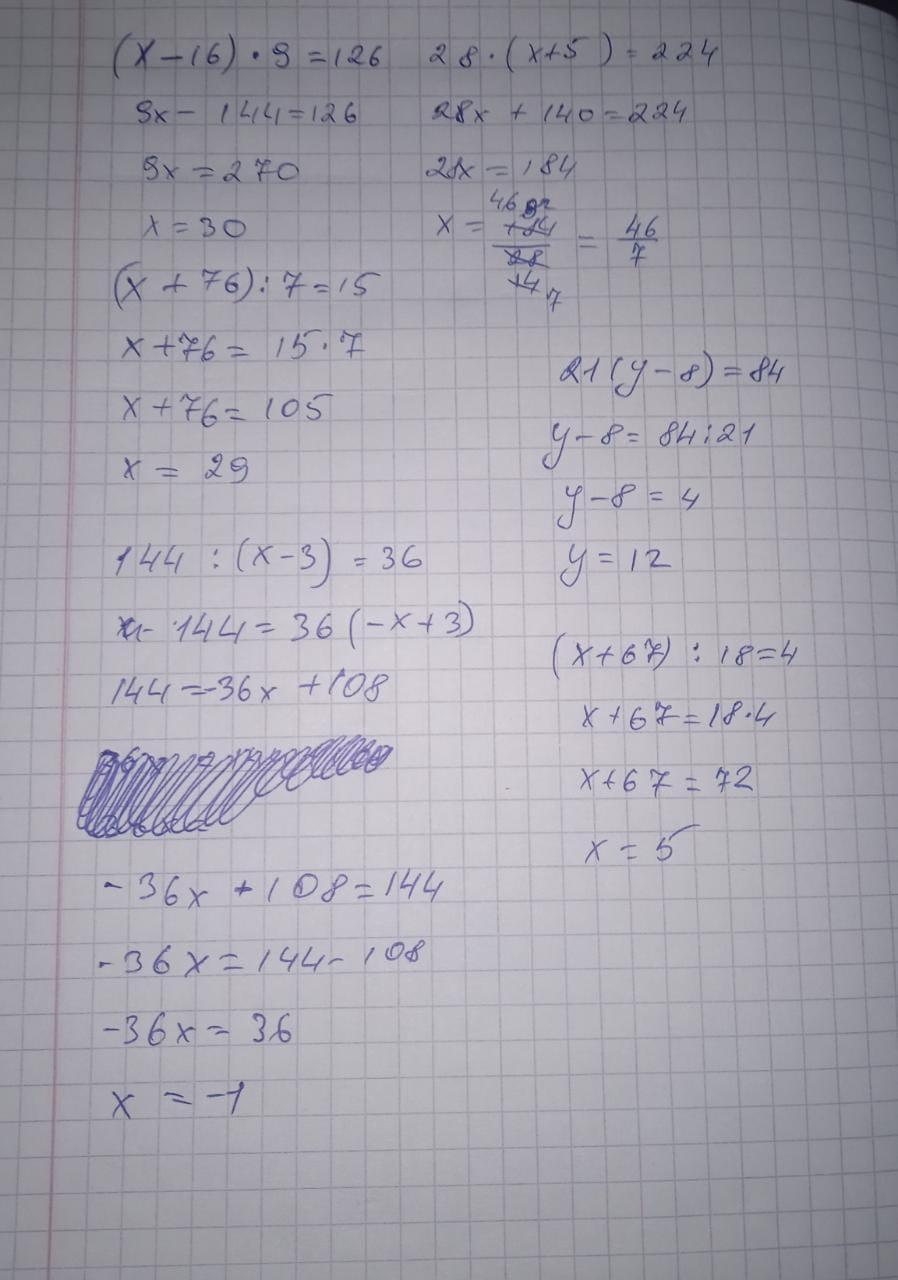 (x-16)·9=126
9x-144=126
9x=270
x=30
(x+76):7=15
x+76=15·7
x+76=105
x=29
144:(x-3)=36
144=36(-x+3)
144=-36x+108
-36x+108=144
-36x=144-108
-36x=36
x=-1
28·(x+5)=224
28x+140=224
28x=184
46 92
x=184/28=46/7
14 7
21(y-8)=84
y-8=84:21
y-8=4
y=12
(x+67):18=4
x+67=18·4
x+67=72
x=5